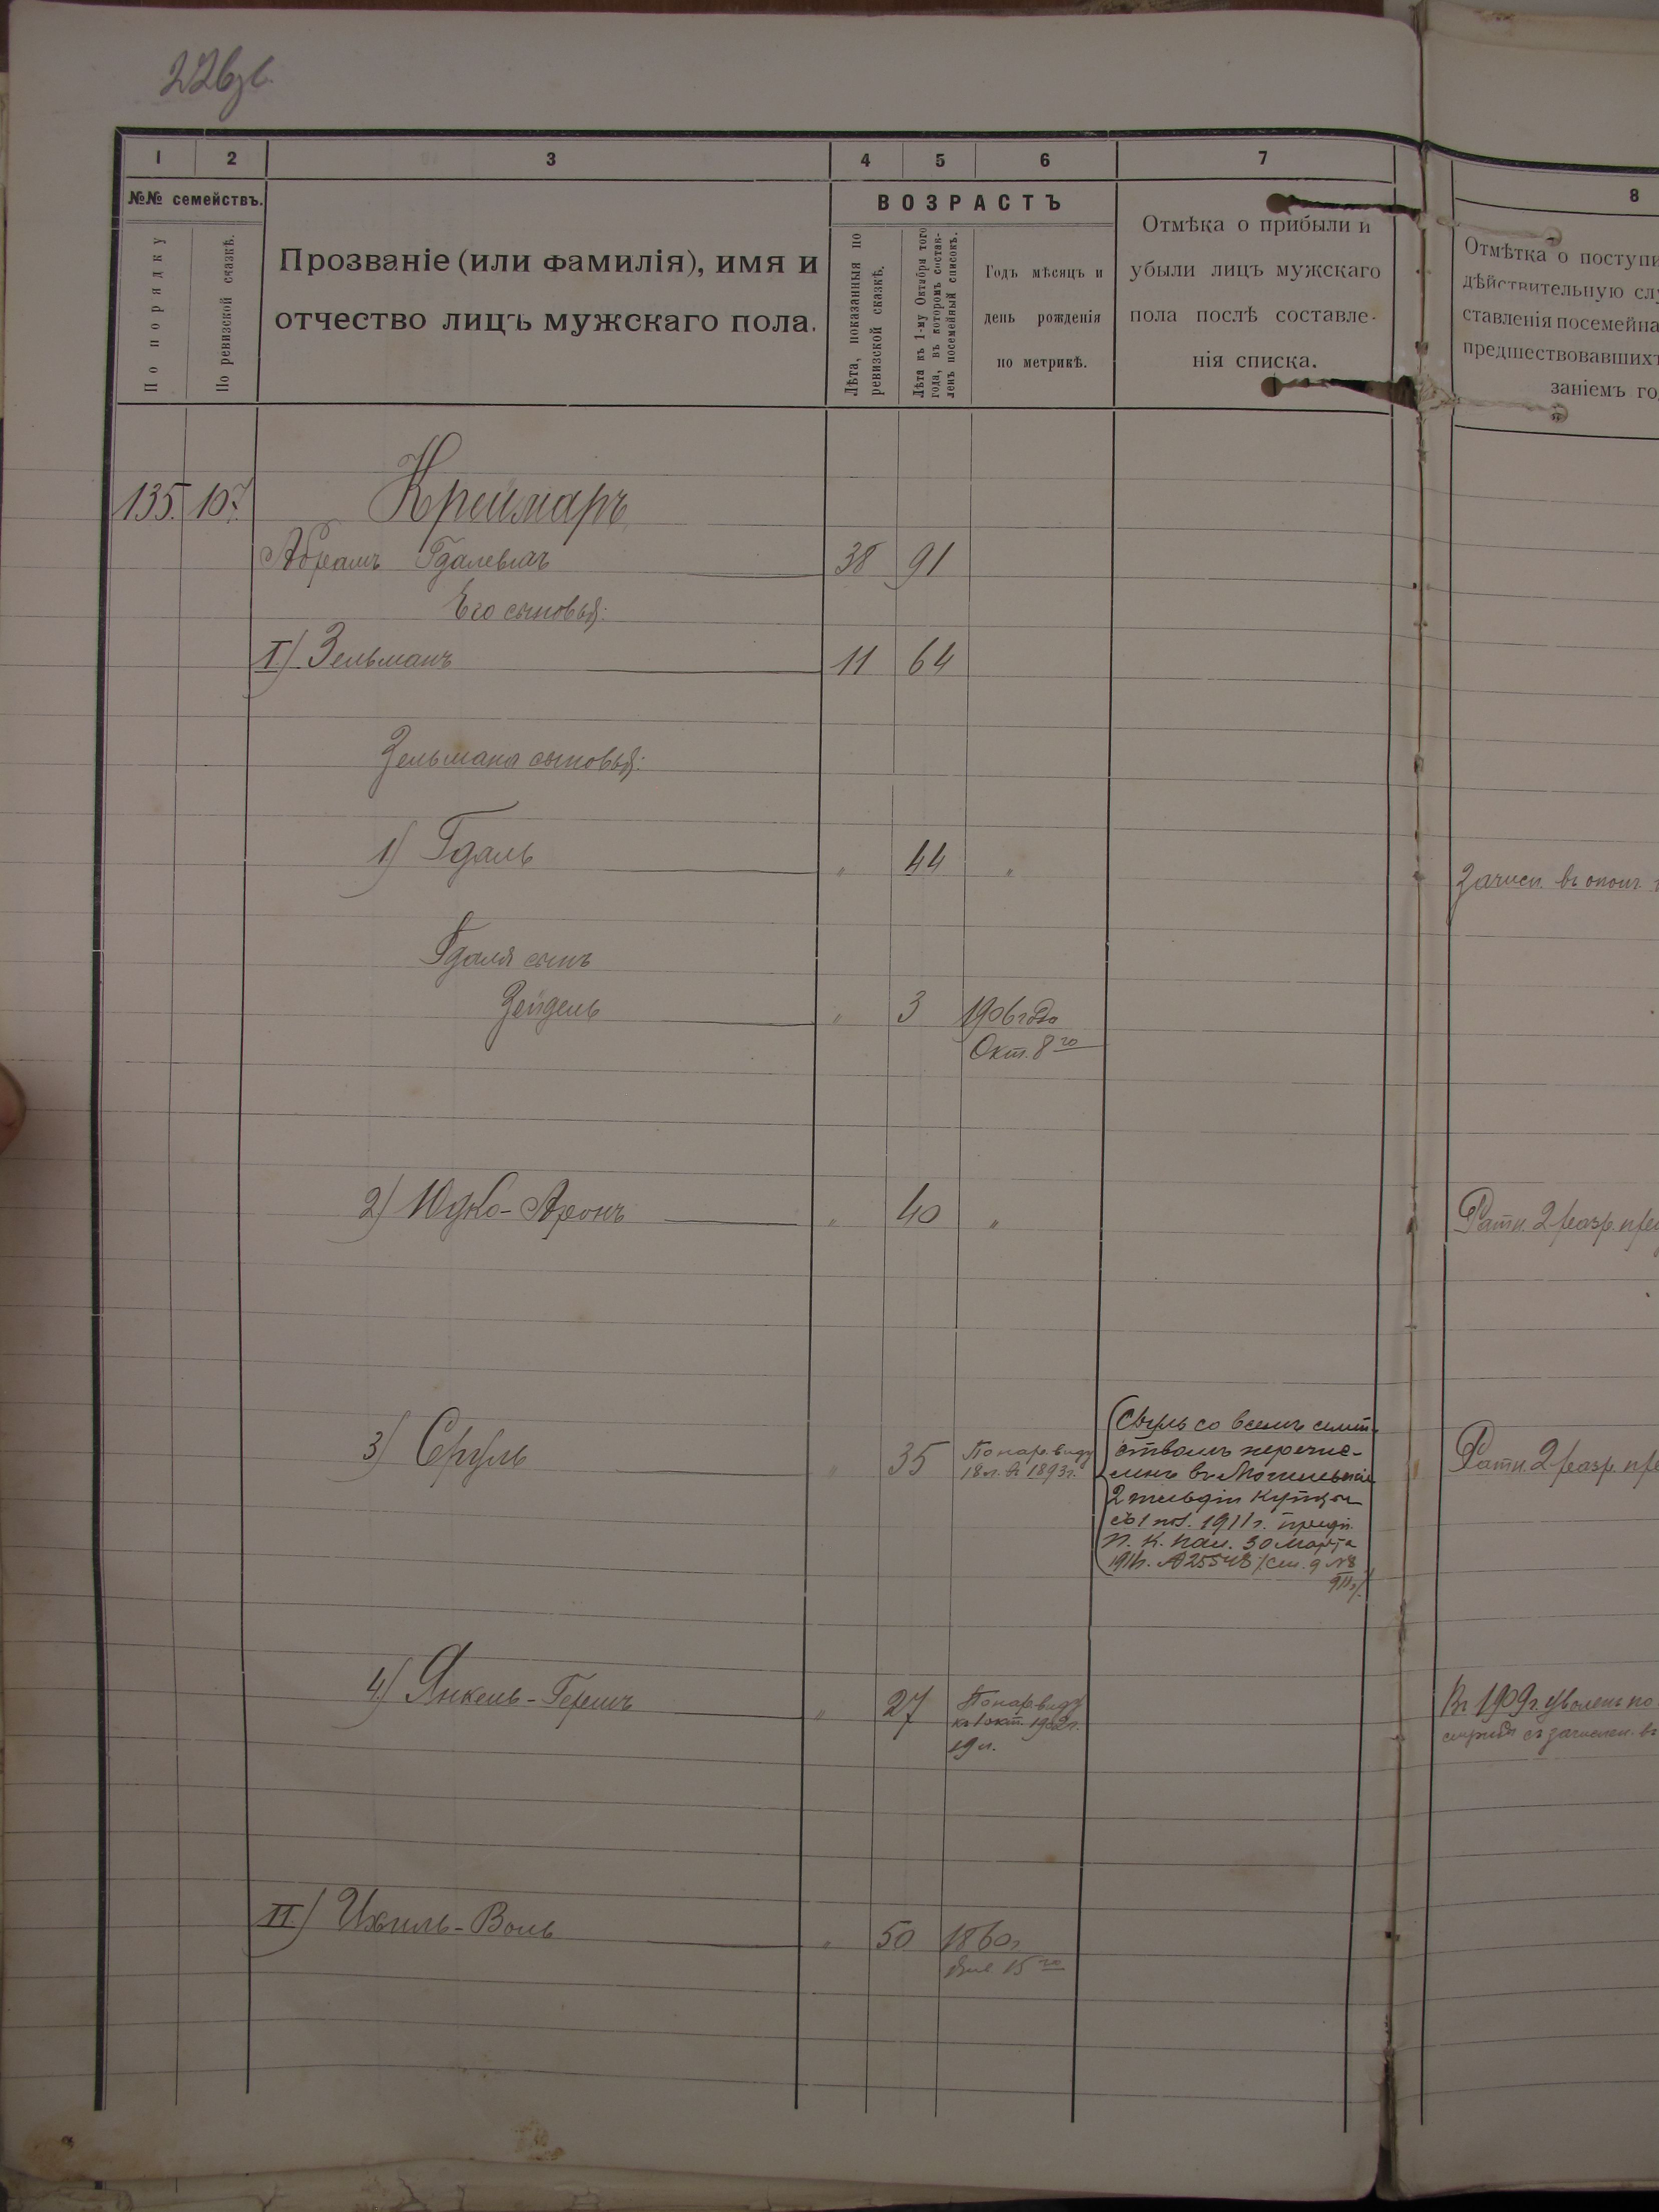 226
1 2 3 4 5 6 7 8
№№ семействъ.
По порядку
По ревизской сказкѣ.
Прозваніе (или фамилія), имя и
отчество лицъ мужскаго пола.
ВОЗРАСТЪ
Лѣта, показанныя по
ревизской сказкѣ.
Лѣта къ 1-му Октября того
года, въ которомъ состав-
ленъ посемейный списокъ.
Годъ мѣсяцъ и
день рожденія
по метрикѣ.
Отмѣка о прибыли и
убыли лицъ мужскаго
пола послѣ составле-
нія списка.
Отмѣтка о поступи
дѣйствительную слу
ставленія посемейна
предшествовавшихъ
заніемъ го
135. 107. Креймаръ
Абрамъ Гдалевичъ 38 91
Его сыновья:
I.) Зельманъ 11 64
Зельмана сыновья:
1) Гдаль " 44 "
Зачисл. въ ополч.
Гдаля сынъ
Зейдель " 3 1906 года
Окт. 8го
2) Юдко-Аронъ " 40 "
Ратн. 2 разр.
3) Сруль " 35
По нар. виду
18 л. въ 1893 г.
Сруль со всемъ семей-
ствомъ перечис-
ленъ въ
2 гильдіи купцы
съ 1911 г.
П. К. Пал. 30 Марта
1911 г.
Ратн. 2 разр.
4) Янкель-Гершъ " 27
По нар. виду
къ 1 окт. 1902 г.
19 л.
Въ 1909 г. уволенъ по
зачислен. въ
II.) Ихиль-Воль " 50 1860 г.
15го